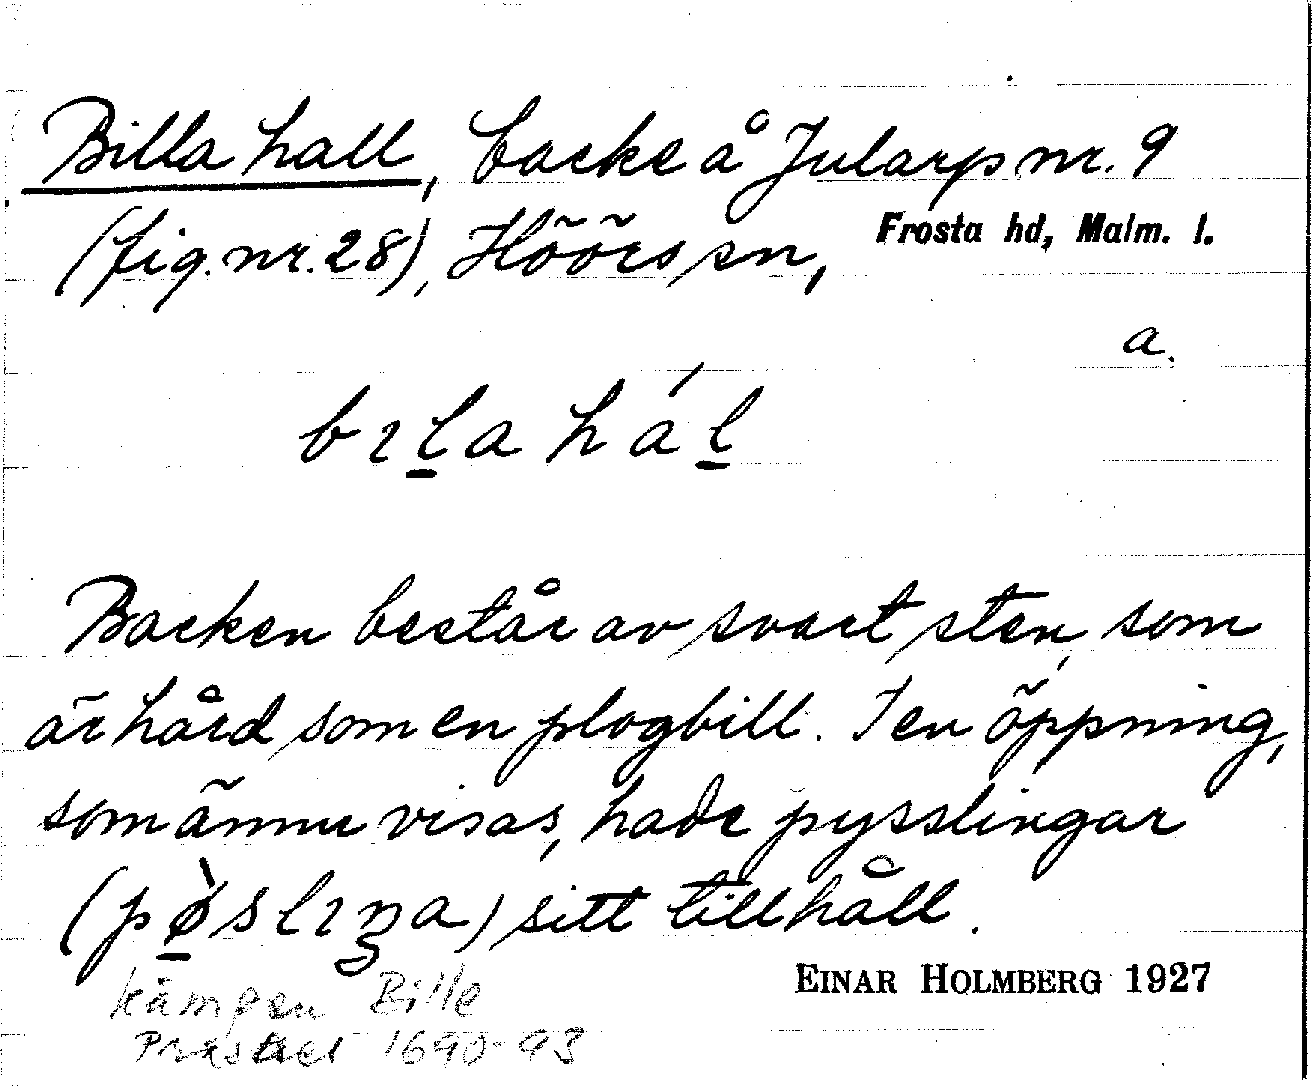 Billa hall, backe å Jularp nr. 9
(fig. nr. 28), Höörs sn, Frosta hd, Malm. l.
a.
bɪl̲a hál̲
Backen består av svart sten, som
är hård som en plogbill. I en öppning,
som ännu visas, hade pysslingar
(pø̲̀slɪŋa) sitt tillhåll.
EINAR HOLMBERG 1927
kämpen Bille
Prästrel 1690-93